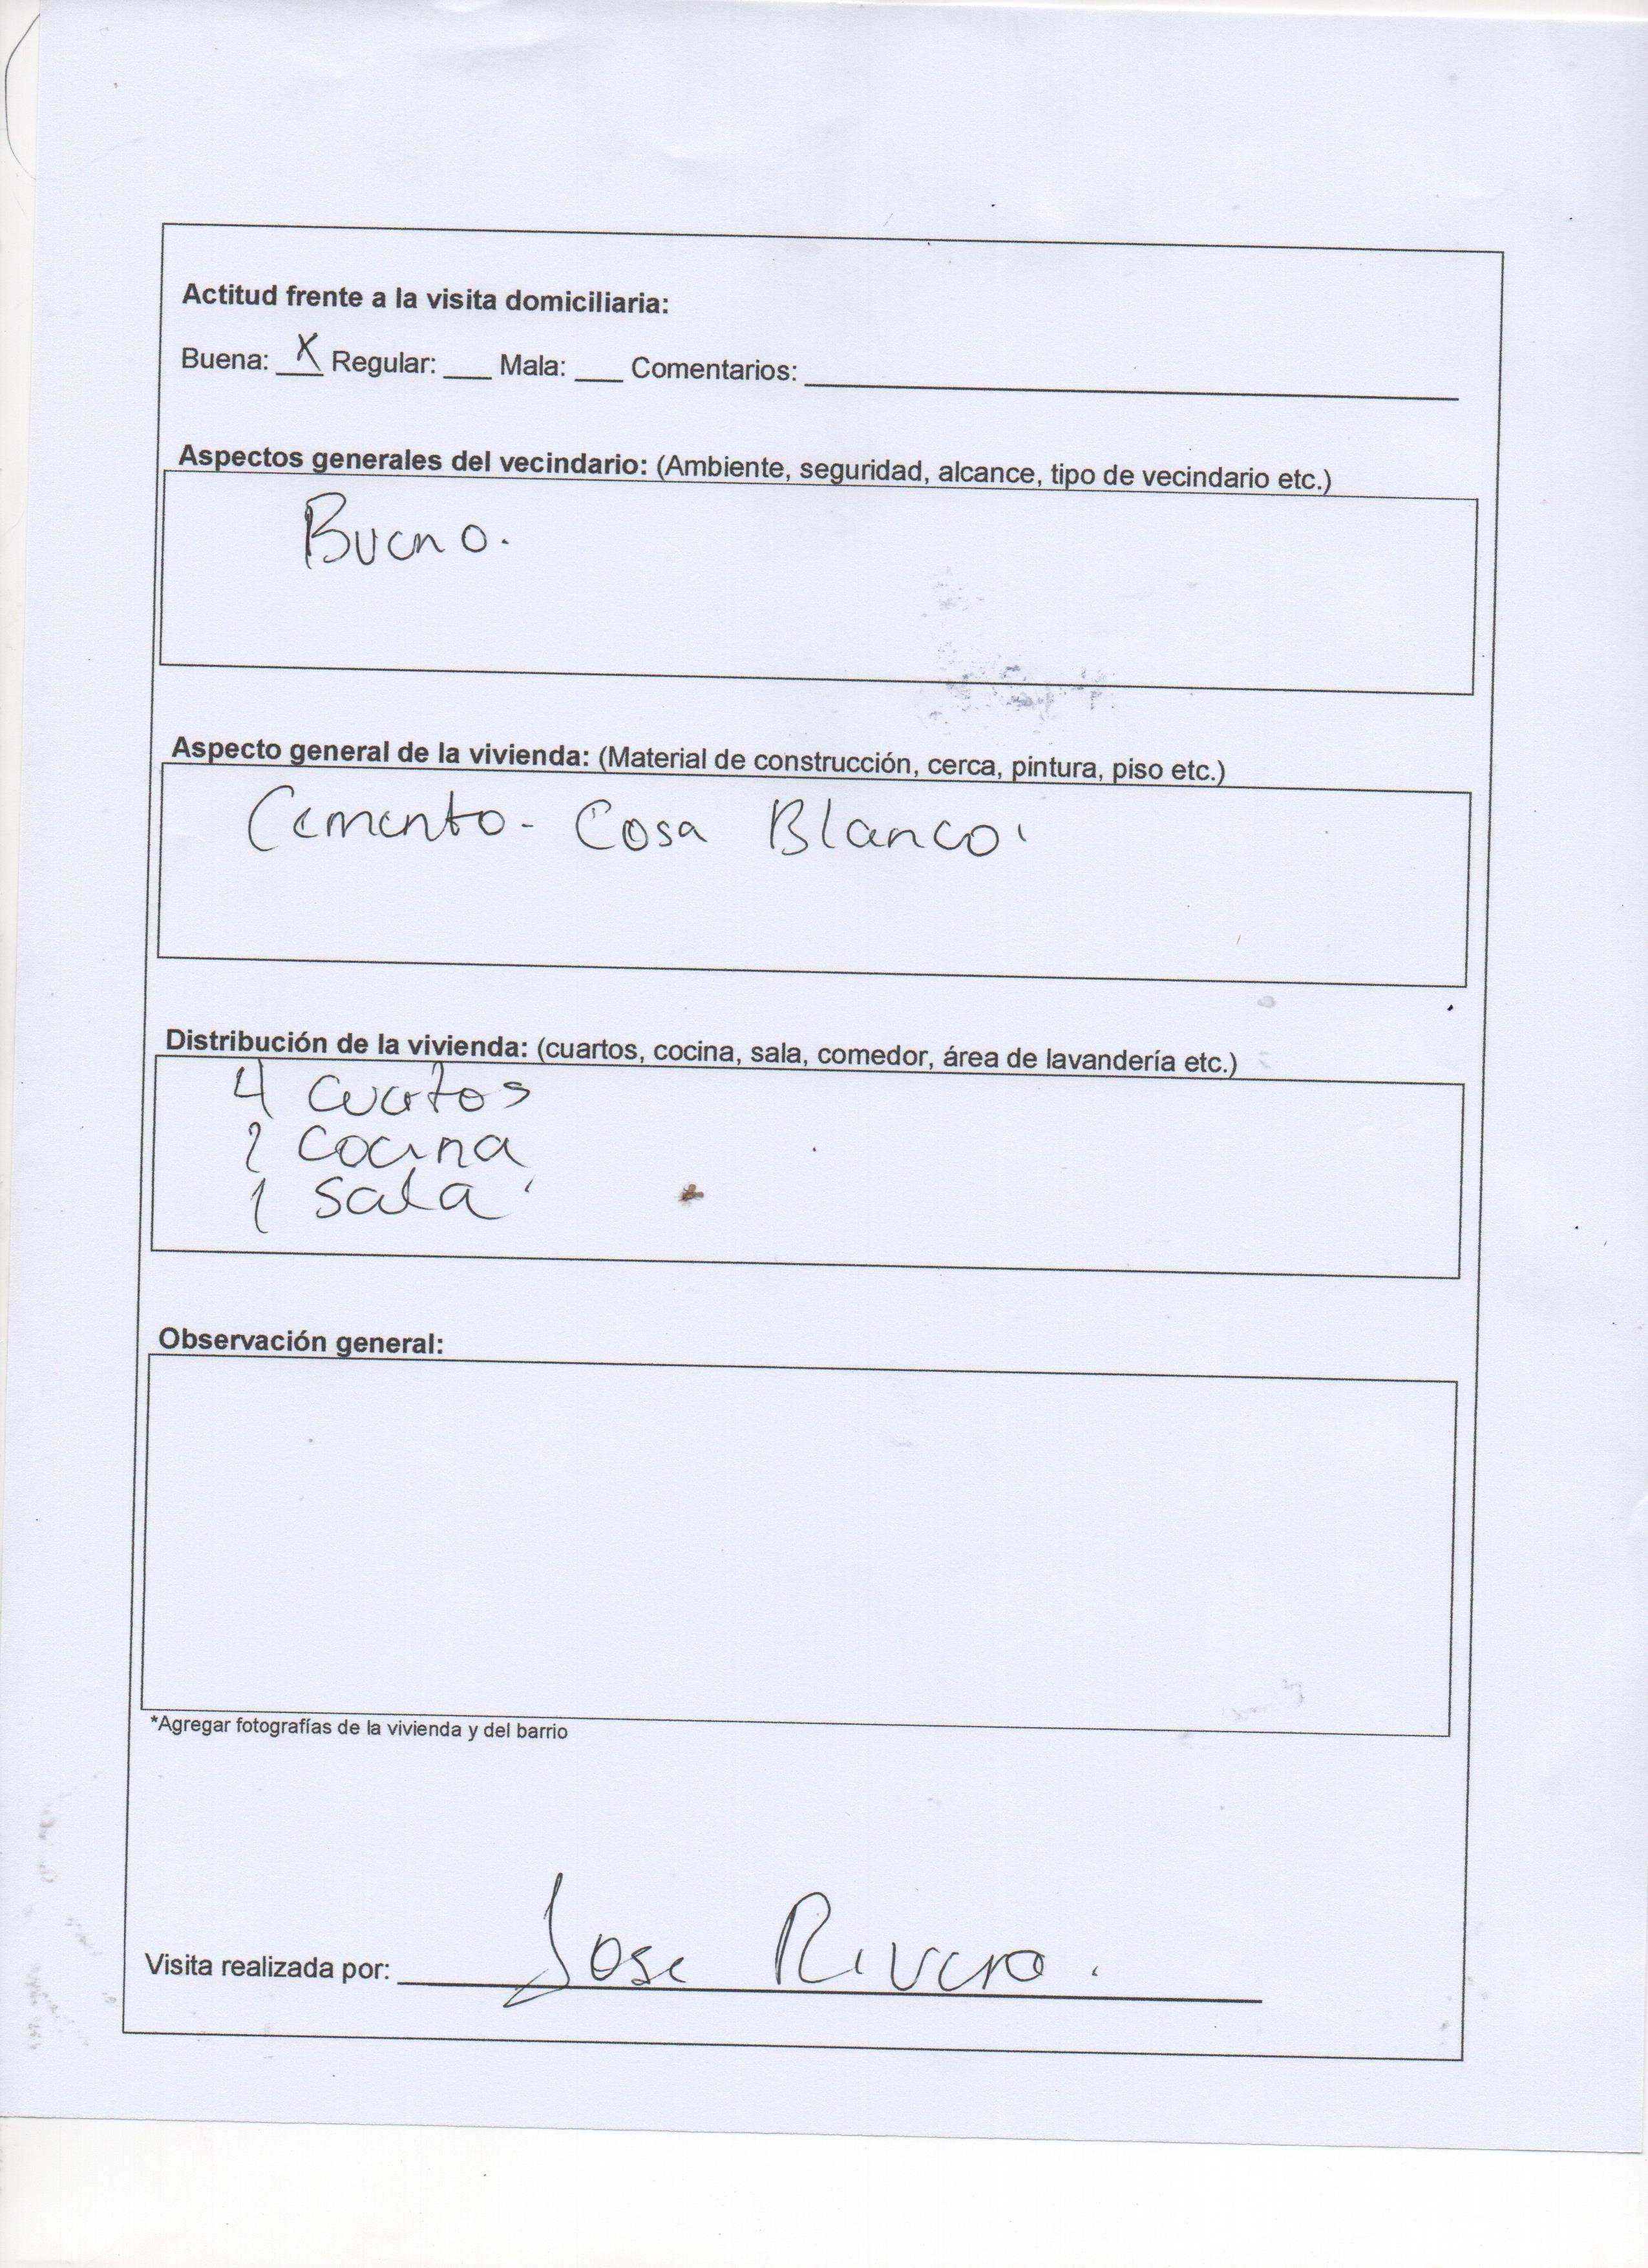 Actitud frente a la visita domiciliaria:
Buena: X Regular: ___ Mala: ___ Comentarios: ___
Aspectos generales del vecindario: (Ambiente, seguridad, alcance, tipo de vecindario etc.)
Bueno.
Aspecto general de la vivienda: (Material de construcción, cerca, pintura, piso etc.)
Cemento - Casa Blanco.
Distribución de la vivienda: (cuartos, cocina, sala, comedor, área de lavandería etc.)
4 cuartos
cocina
1 sala.
Observación general:
*Agregar fotografías de la vivienda y del barrio
Visita realizada por: Jose Rivera.